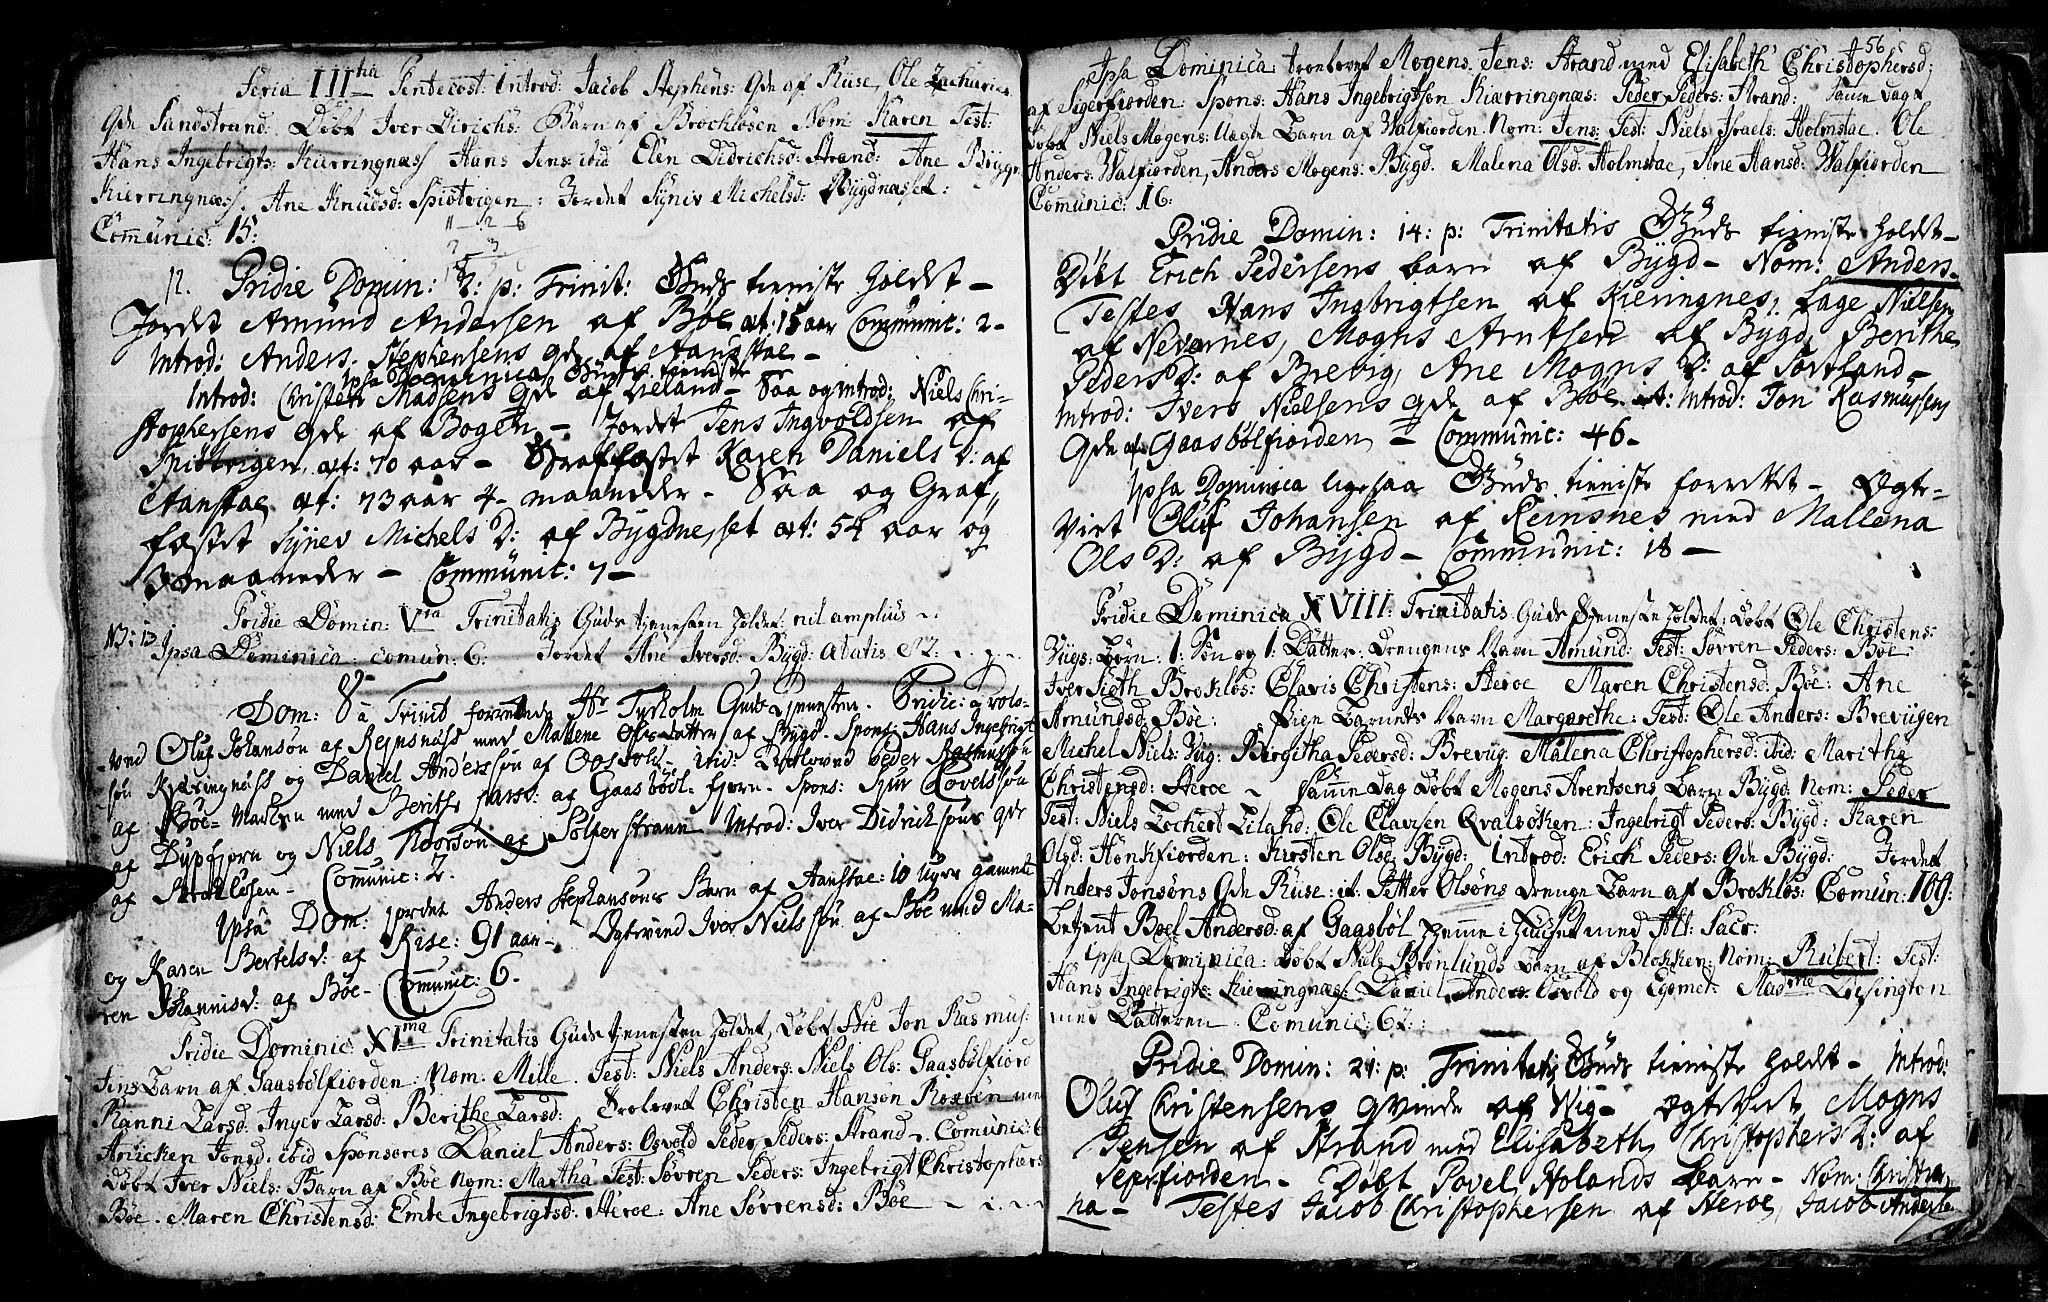 Feria III tia Pentecost: Introd: Jacob Stephens: Qde af Riise, Ole Zacharies
Qde Sandstrand: Döbt Iver Dirichs: Barn af Brocklösen Nom: Karen Test:
Hans Ingebrigts: Kierringnæss Hans Jens: ibid Elen Didrichsd: Strand: Ane Brygr
Kierringnæss. Ane Knudsd: Spiötvigen: Jordet Syniv Michelsd: Bygdnæsset:
Comunic: 15:
Pridie Domin: 2: p: Trinit: Guds tieniste holdt –
Jordet Amund Andersen af Böe æt: 15 aar Communic: 2–
Introd: Anders Stephensens qde af Aanstae –
Ipsa Dominica Guds tieniste
Introd: Christen Madsens Qde af Veland – Saa og introd: Niels Chri-
stophersens qde af Bogen – Jordet Jens Ingvoldsen af
Spiötvigen, æt: 70 aar – Graffæstet Karen Daniels D: af
Aanstae æt: 73 aar 4– maaneder – Saa og Graf-
fæstet Synev Michels D: af Bygdnesset æt: 54 aar og
3 maaneder – Communic: 7 –
Pridie Domin: V ta Trinitatis Guds tjenesten holdet nil amplius
N3: 13 Ipsa Dominica comun: 6. Jordet Ane Iversd: Bygd: ætatis 82:
Dom: 8 a Trinit forrettede Hr Tyrholm Guds Tjenesten. Pridie: a trolo-
ved Oluf Johansøn af Reinsnæss med Mallene Olsdatter af Bygd. Spons: Hans Ingebrigt
søn Kierringnæss og Daniel Anderssøn af Oosvold – itid: troloved Peder Rasmussøn
af Böe – Marken med Berithe Larsd: af Gaasbödl-fjorn – Spons: Siur Lovelssøn
af Dypfjorn og Niels Thoorsøn af Solferstrann Introd: Iver Didrichsøns qde
af Brokløsen – Comunic: 2.
Ipsa Dom: jordet Anders Stephansøns Barn af Aanstae: 10 uger gammel
og Karen Bertelsd: af Rise: 91 aar – Ogtevied Iver Nielssøn af Böe med Ma-
ren Johannisd: af Böe – Comunic: 6.
Pridie Dominic: XI ma Trinitatis Guds tjenesten holdet, Döbt Jon Rasmus:
Jens Barn af Gaasbölfiorden: Nom: Mille. Test: Niels Anders: Niels Ols: Gaasbölfiord
Ranni Larsd: Inger Larsd: Berithe Larsd: Trolovet Christen Hanson Roxöen med
Anicken Jonsd: ibid Sponsores Daniel Anders: Osvold Peder Peders: Strand – Comunic: 6
Döbt Iver Niels: Barn af Böe Nom: Martha Test: Sövren Peders: Ingebrigt Christophers
Böe. Maren Christensd: Emte Ingebrigtsd: Heroe: Ane Sövrensd: Böe
56
Ipsa Dominica: trolovet Mogens Jens: Strand med Elisabeth Christophersd:
af Sigerfiorden: Spons: Hans Ingebrigtson Kierringnæs: Peder Peders: Strand: Samme dag
döbt Niels Mogens: Uægte Barn af Walfiorden. Nom: Jens: Test: Niels Israels: Holmstae. Ole
Anders: Walfiorden, Anders Mogens: Bygd. Malena Olsd: Holmstae, Ane Hansd: Walfiorden
Comunic: 16:
Pridie Domin: 14: p: Trinitatis Guds tieniste holdt –
Döbt Erich Pedersens barn af Bygd – Nom: Anders –
Testes Hans Ingbrigtsen af Kierringnes, Lage Nielsen
af Nevernes, Mogns Arntsen af Bygd, Berithe
Peders D: af Brevig, Ane Mogns D: af Sortland –
Introd: Ivers Nielsens qde af Böe it: Introd: Jon Rasmussens
Qde af Gaasbölfiorden – Communic: 46 –
Ipsa Dominica ligesaa Guds tieniste forrettet – Ægte-
viet Oluf Johansen af Reinsnes med Mallena
Ols D: af Bygd – Communic: 18 –
Pridie Dominica XVIII: Trinitatis Guds Tjeneste holdet: Döbt Ole Christens:
Vigs: Börn: 1: Sön og 1: Datter: Drengens Navn Amund: Test: Sövren Peders: Böe:
Iver Siöth Broklös: Clavis Christens: Heroe Maren Christensd: Böe: Ane
Amundsd: Böe: Pige Barnets Navn Margarethe: Test: Ole Anders: Brevigen
Michel Niels: Vig: Birgitha Pedersd: Brevig: Malena Christophersd: ibid: Maritha
Christensd: Heroe – Samme Dag Döbt Mogens Arentsens Barn Bygd: Nom: Peder
Test: Niels Lochert Liland: Ole Clavisen Qvalsöken: Ingebrigt Peders: Bygd: Karen
Olsd: Honkfiorden: Kirsten Olsd: Bygd: Introd: Erich Peders: Qde Bygd: Jordet
Anders Jonsöns Qde Riise: it: Petter Olsöns Drenge Barn af Broklös: Comun: 109:
Betjent Boel Andersd: af Gaasböl hjemme i Huuset med Alt: Sacr:
Ipsa Dominica: Döbt Niels Brönlunds Barn af Blokken: Nom: Rubert: Test:
Hans Ingebrigts: Kierringnæs: Daniel Anders: Osvold og Egomet: Madme
med Datteren: Comunic: 62:
Pridie Domin: 21: p: Trinitatis Guds tieniste holdt – Introd:
Oluf Christensens qvinde af Vig – ogteviet Mogns
Jensen af Strand med Elisabeth Christophers D: af
Seierfiorden – Döbt Povel Holands Barn – Nom: Christia
na – Testes Jacob Christophersen af Heroe, Jacob Anders